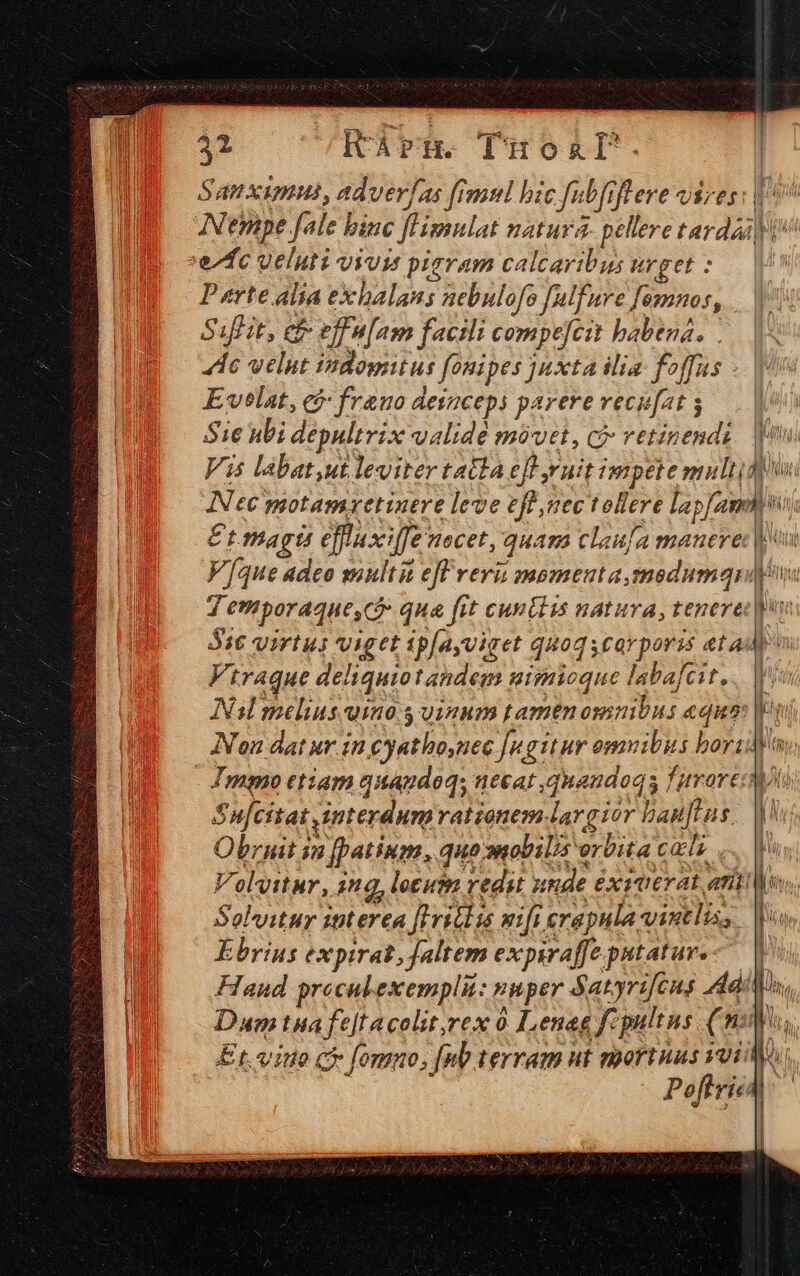 32 RAPH. THORI
Sanximus, adverſas ſimul hic ſubſiſtere vires:
Nempe ſale hinc ſtimulat naturā pellere tardā
Ac veluti vivis pigram calcaribus urget :
Parte alia exhalans nebuloſo ſulfure ſomnos,
Siſtit, & effuſam facili compeſcit habenâ.
Ac velut indomitus ſonipes juxta ilia foſſus
Evolat, & fræno deinceps parere recuſat ;
Sic ubi depultrix validè movet, & retinendi
Vis labat, ut leviter tacta eſt, ruit impete
Nec motam retinere leve eſt, nec tollere
Et magis effluxiſſe nocet, quam clauſa manere:
Vſque adeo multū eſt rerū momenta,
Temporaque, & quæ ſit cunctis natura, tenere:
Sic virtus viget ipſa, viget quoq; corporis
Vtraque deliquio tandem nimioque labaſcit.
Nil melius vino ; vinum tamen omnibus æquè
Non datur in cyatho, nec ſugitur omnibus
Immo etiam quandoq; necat, quandoq;
Suſcitat, interdum rationem largior hauſtus
Obruit in ſpatium, quo mobilis orbita cœli
Volvitur, inq, locum redit unde exiverat
Solvitur interea ſtrictis niſi crapula vinclis,
Ebrius expirat, ſaltem expiraſſe putatur.
Haud procul exemplū: nuper Satyriſcus
Dum tua feſta colit, rex ô Lenæe ſepultus
Et vino & ſomno, ſub terram ut mortuus